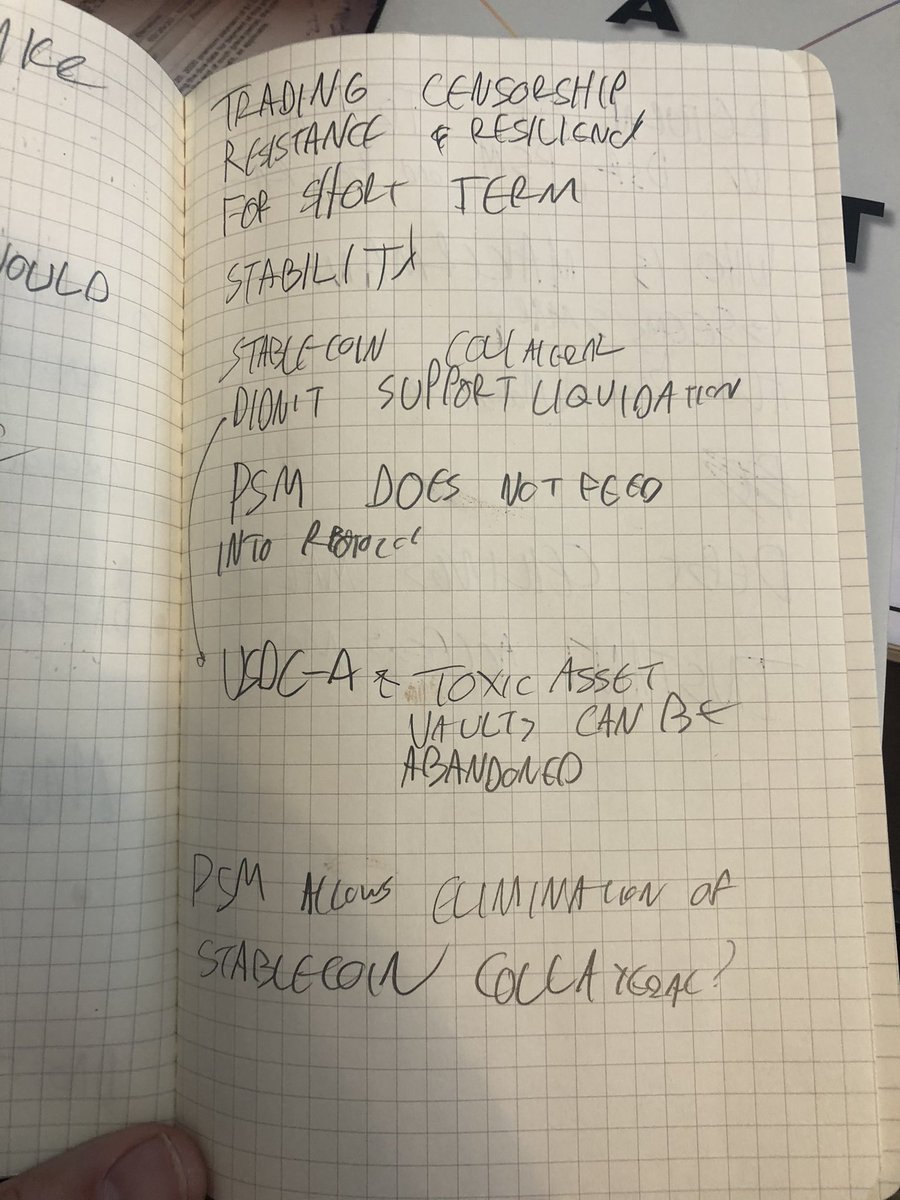 ke
OULD
TRADING CENSORSHIP
RESISTANCE & RESILIENC
FOR SHORT TERM
STABILITY
STABLECOIN COLLATERAL
DIDN'T SUPPORT LIQUIDATION
PSM DOES NOT FEED
INTO
USDC-A & TOXIC ASSET
VAULTS CAN BE
ABANDONED
PSM ALLOWS ELIMINATION OF
STABLECOIN COLLATERAL?
A
T